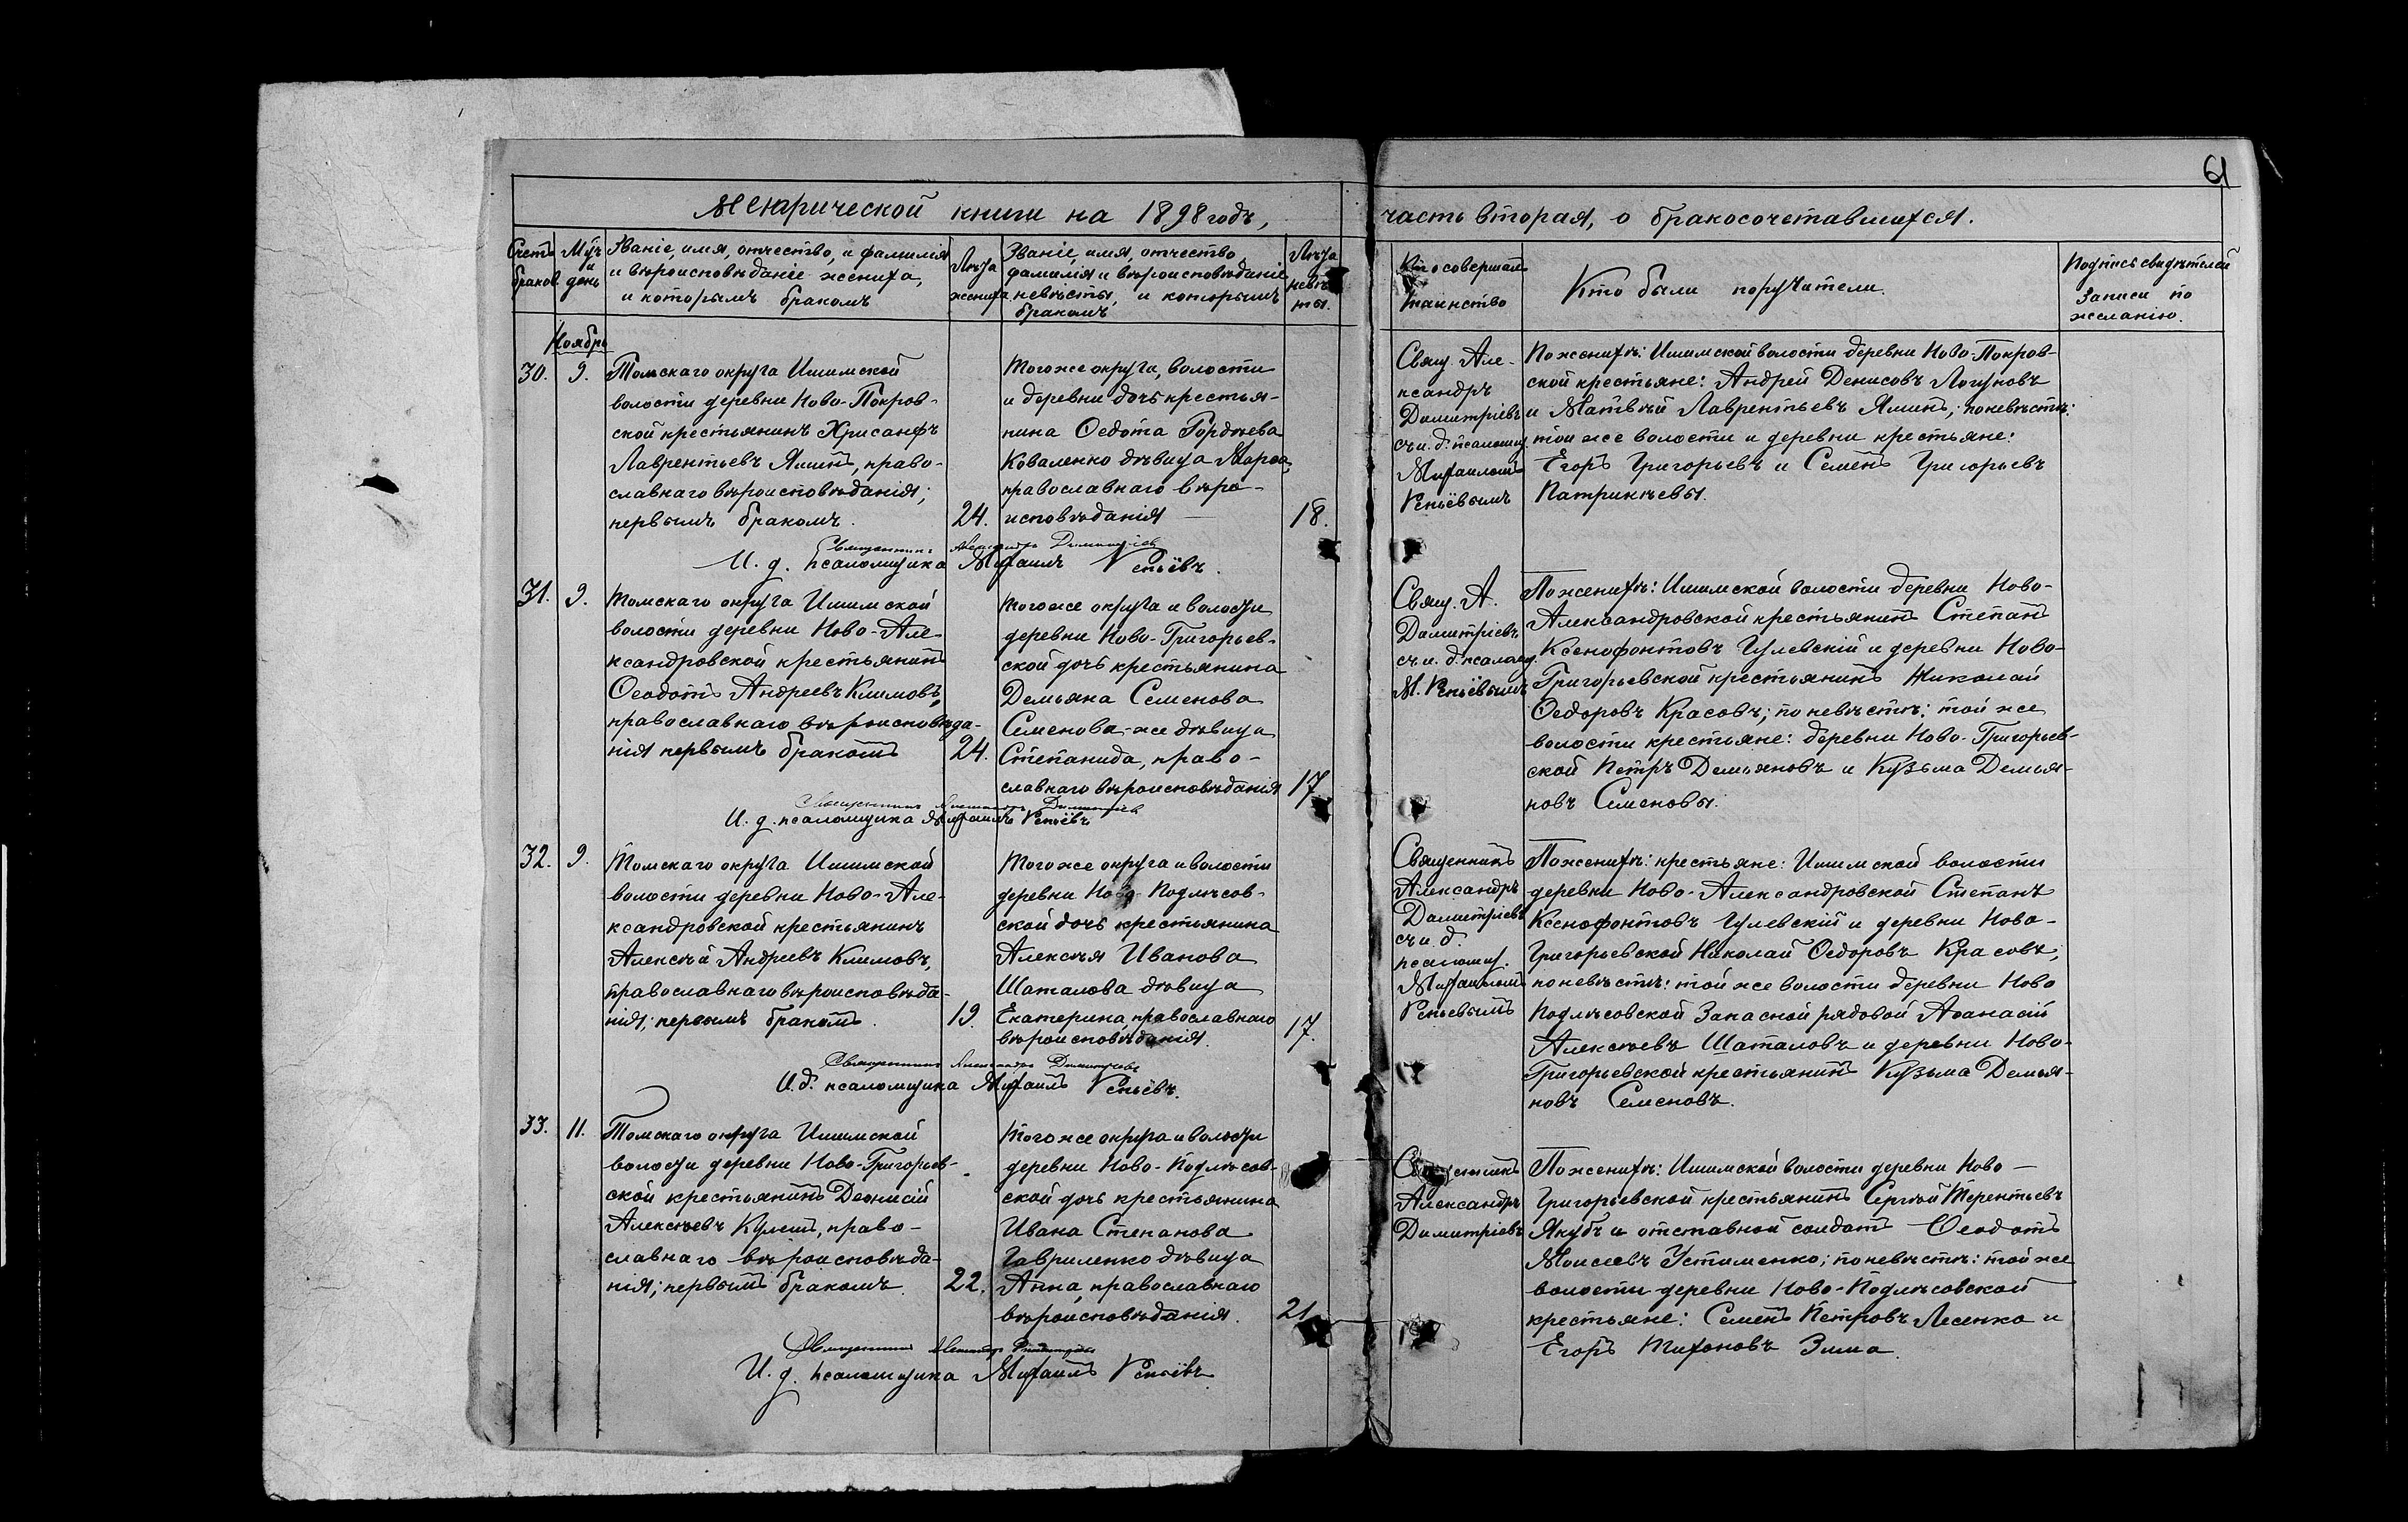 61
Метрической книги на 1898 годъ,
часть вторая, о бракосочетавшихся.
Счетъ браков
Мѣс. и день
Званіе, имя, отчество, и фамилія
и вѣроисповѣданіе жениха,
и которымъ бракомъ
Лѣта
жениха
Званіе, имя, отчество,
фамилія и вѣроисповѣданіе
невѣсты, и которымъ
бракомъ
Лѣта
невѣс
ты.
Кто совершалъ
таинство
Кто были поручители.
Подпись свидѣтелей
записи по
желанію.
Ноябрь
30.
9.
Томскаго округа Ишимской
волости деревни Ново-Покров-
ской крестьянинъ Хрисанфъ
Лаврентьевъ Яминъ, право-
славнаго вѣроисповѣданія;
первымъ бракомъ.
24.
Того же округа, волости
и деревни дочь крестья-
нина Ѳедота Гордѣева
Коваленко дѣвица Марѳа,
православнаго вѣро-
исповѣданія
18.
Свящ. Але-
ксандръ
Димитріевъ
съ и. д. псаломщ.
Михаиломъ
Репьёвымъ
По женихѣ: Ишимской волости деревни Ново-Покров-
ской крестьяне: Андрей Денисовъ Логуновъ
и Матвѣй Лаврентьевъ Яминъ; по невѣстѣ:
той же волости и деревни крестьяне:
Егоръ Григорьевъ и Семенъ Григорьевъ
Патрикѣевы.
Священникъ Александръ Димитріевъ
И. д. псаломщика Михаилъ Репьёвъ.
31.
9.
Томскаго округа Ишимской
волости деревни Ново-Але-
ксандровской крестьянинъ
Ѳеодотъ Андреевъ Климовъ,
православнаго вѣроисповѣда-
нія первымъ бракомъ
24.
Того же округа и волости
деревни Ново-Григорьев-
ской дочь крестьянина
Демьяна Семенова
Семенова-же дѣвица
Степанида, право-
славнаго вѣроисповѣданія
17.
Свящ. А.
Димитріевъ
съ и. д. псаломщ.
М. Репьёвымъ
По женихѣ: Ишимской волости деревни Ново-
Александровской крестьянинъ Степанъ
Ксенофонтовъ Гулевскій и деревни Ново-
Григорьевской крестьянинъ Николай
Ѳедоровъ Красовъ; по невѣстѣ: той же
волости крестьяне: деревни Ново-Григорьев-
ской Петръ Демьяновъ и Кузьма Демья-
новъ Семеновы.
Священникъ Александръ Димитріевъ
И. д. псаломщика Михаилъ Репьёвъ
32.
9.
Томскаго округа Ишимской
волости деревни Ново-Але-
ксандровской крестьянинъ
Алексѣй Андреевъ Климовъ,
православнаго вѣроисповѣда-
нія; первымъ бракомъ.
19.
Того же округа и волости
деревни Ново-Подлѣсов-
ской дочь крестьянина
Алексѣя Иванова
Шаталова дѣвица
Екатерина, православнаго
вѣроисповѣданія.
17.
Священникъ
Александръ
Димитріевъ
съ и. д.
псаломщ.
Михаиломъ
Репьевымъ
По женихѣ: крестьяне: Ишимской волости
деревни Ново-Александровской Степанъ
Ксенофонтовъ Гулевскій и деревни Ново-
Григорьевской Николай Ѳедоровъ Красовъ;
по невѣстѣ: той же волости деревни Ново
Подлѣсовской запасной рядовой Аѳанасій
Алексѣевъ Шаталовъ и деревни Ново-
Григорьевской крестьянинъ Кузьма Демья-
новъ Семеновъ.
Священникъ Александръ Димитріевъ
И. д. псаломщика Михаилъ Репьёвъ.
33.
11.
Томскаго округа Ишимской
волости деревни Ново-Григорьев-
ской крестьянинъ Деонисій
Алексѣевъ Кулешъ, право-
славнаго вѣроисповѣда-
нія; первымъ бракомъ.
22.
Того же округа и волости
деревни Ново-Подлѣсов-
ской дочь крестьянина
Ивана Степанова
Гавриленко дѣвица
Анна, православнаго
вѣроисповѣданія.
21
Священникъ
Александръ
Димитріевъ
По женихѣ: Ишимской волости деревни Ново-
Григорьевской крестьянинъ Сергѣй Терентьевъ
Якубъ и отставной солдатъ Ѳеодотъ
Моисеевъ Устименко; по невѣстѣ: той же
волости деревни Ново-Подлѣсовской
крестьяне: Семенъ Петровъ Лесенко и
Егоръ Тихоновъ Зима.
Священникъ Александръ Димитріевъ
И. д. псаломщика Михаилъ Репьёвъ